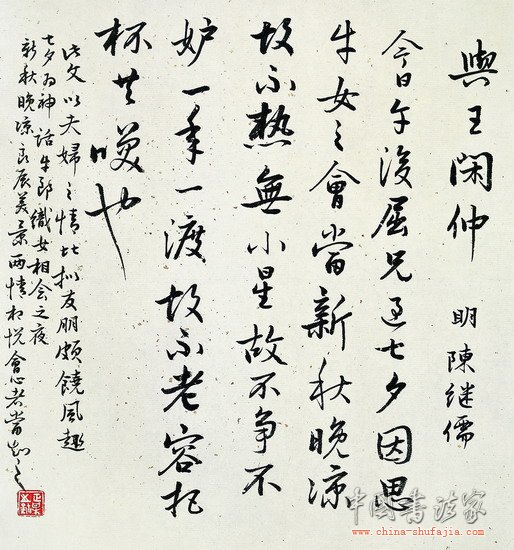 與王閑仲 明 陳继儒
今日午後屈兄過七夕因思
牛女之會當新秋晚涼
故不熱無小星故不争不
妒一年一渡故不老容把
杯共嘆也
此文以夫婦之情比拟友朋頗饒風趣
七夕为神話牛郎織女相会之夜
新秋晚凉良辰美景两情相悦會心者當知之
中国書法家
www.china-shufajia.com